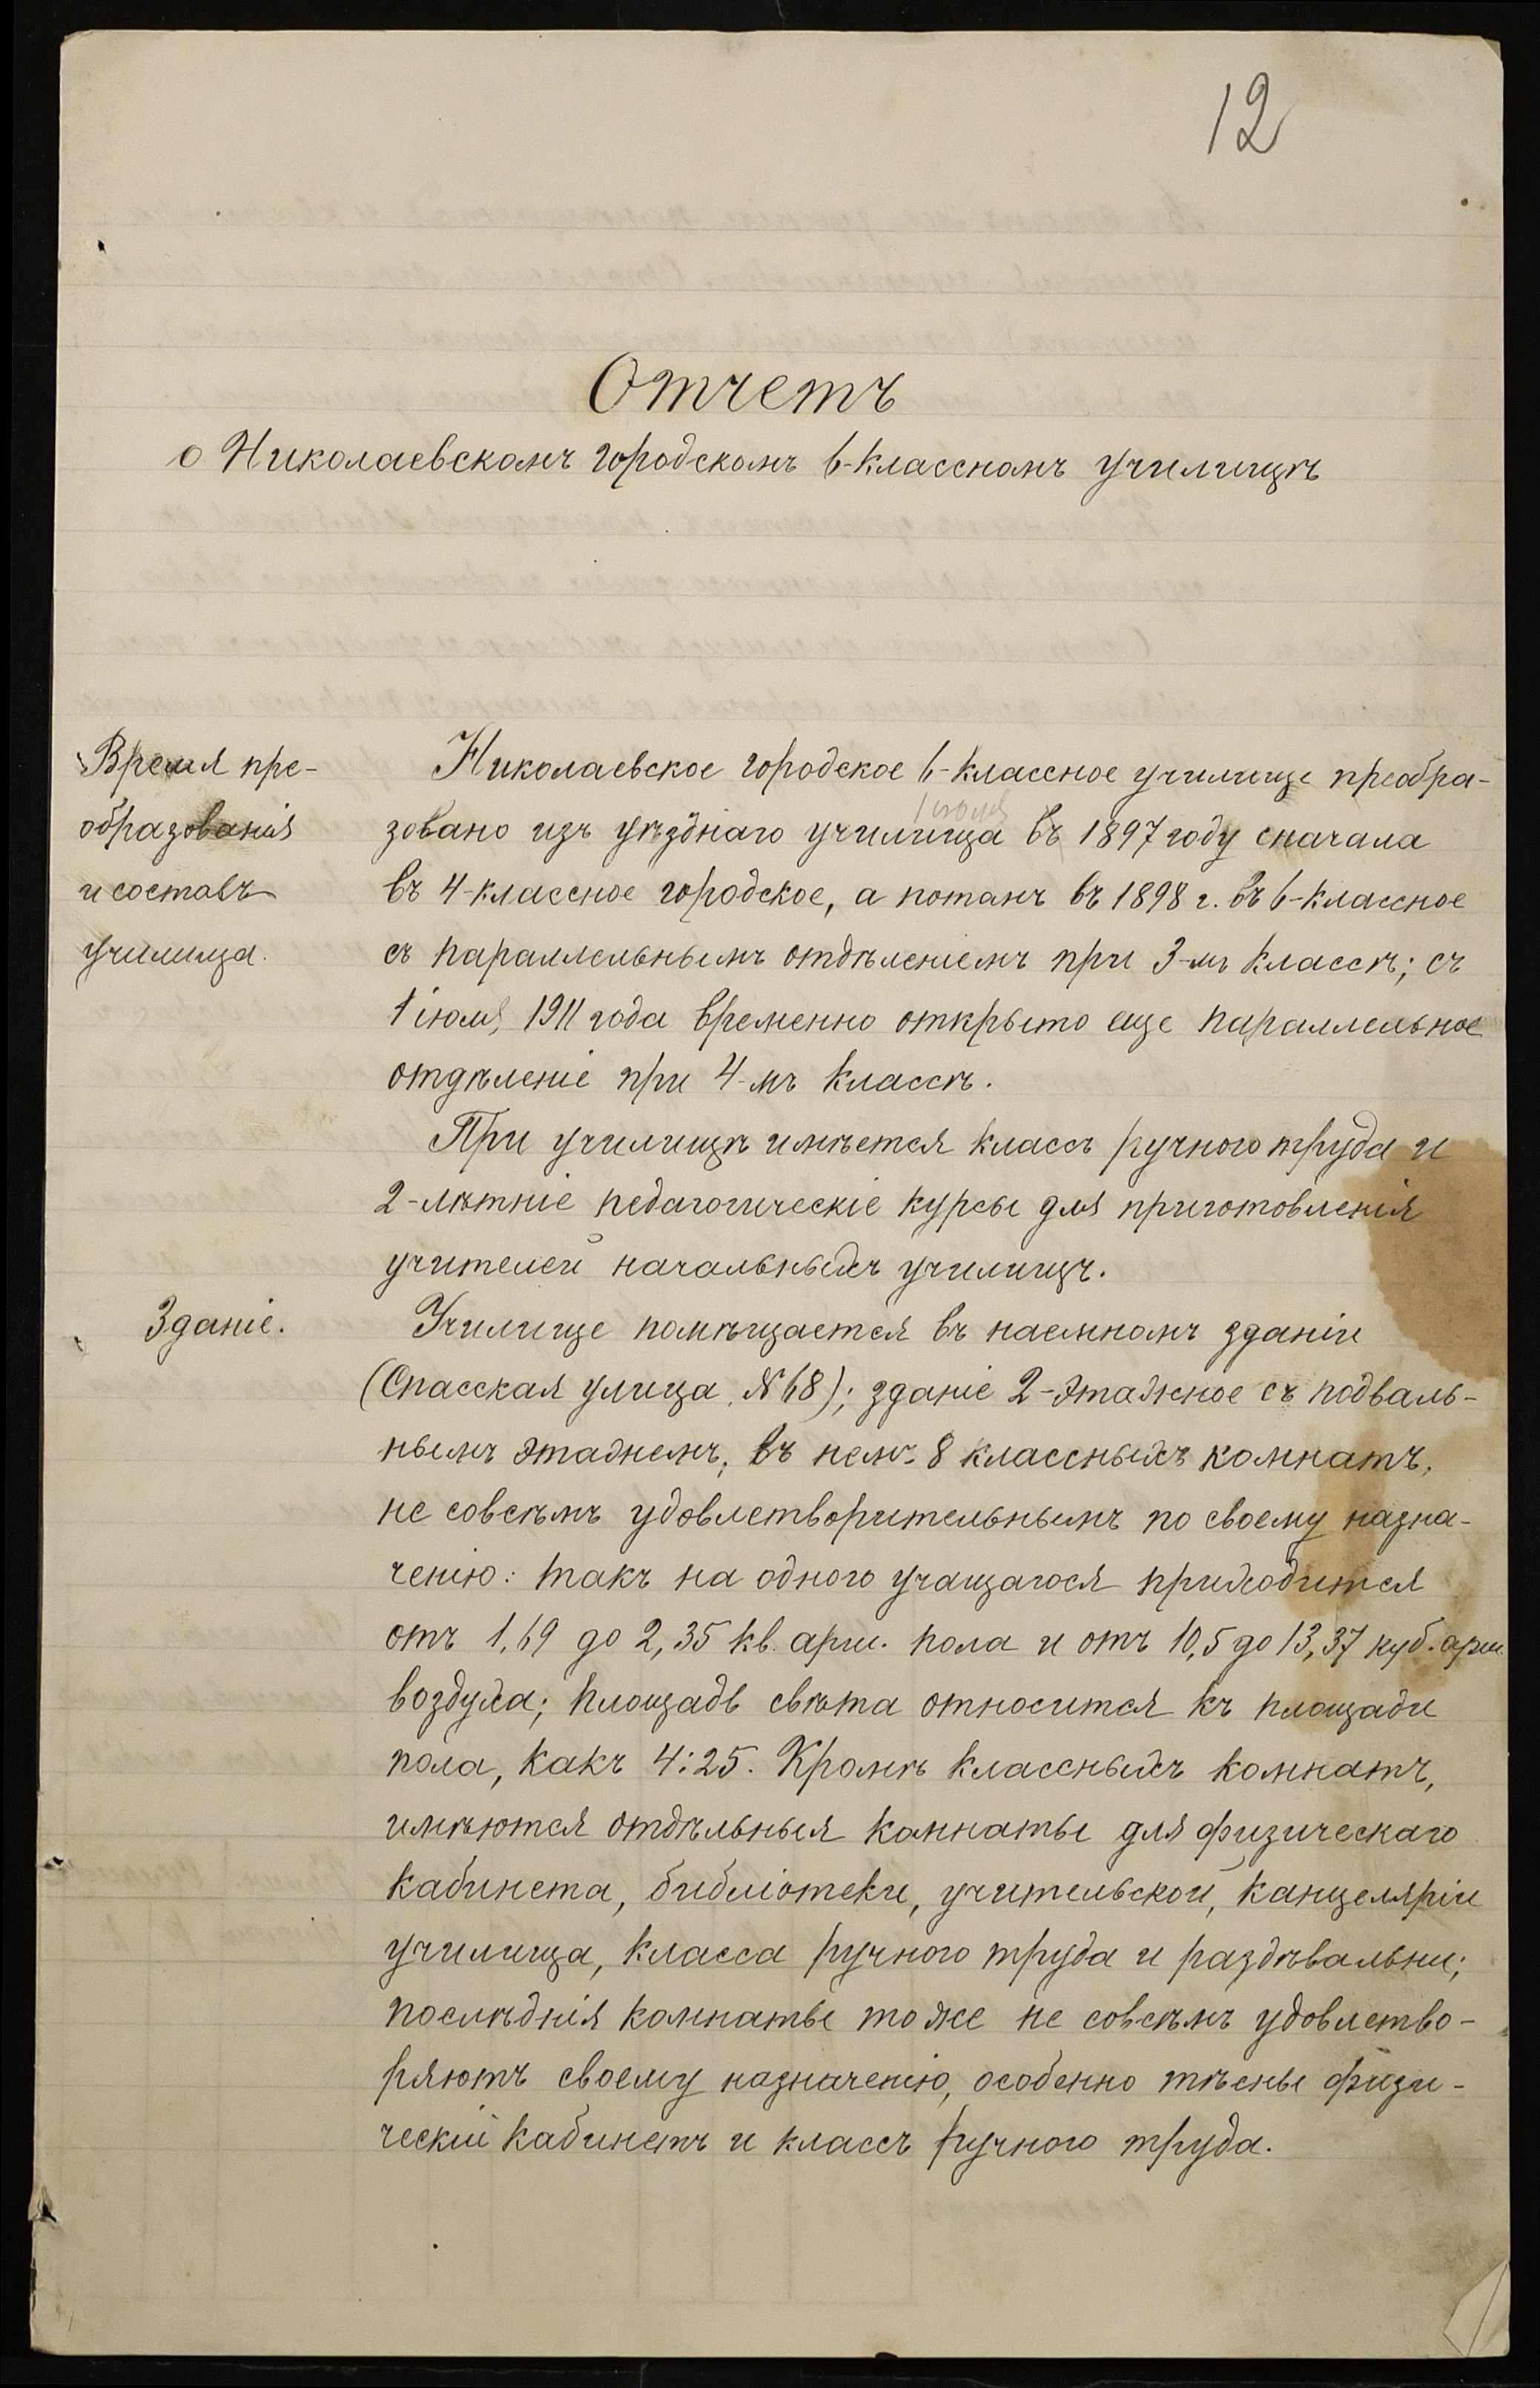 12
Отчетъ
о Николаевскомъ городскомъ 6-классномъ училищѣ
Время пре-
образованія
и составъ
училища.
Николаевское городское 6-классное училище преобра-
1 іюля
зовано изъ уѣзднаго училища въ 1897 году сначала
въ 4-классное городское, а потомъ въ 1898 г. въ 6-классное
съ параллельнымъ отдѣленіемъ при 3-мъ классѣ; съ
1 іюля 1911 года временно открыто еще параллельное
отдѣленіе при 4-мъ классѣ.
При училищѣ имѣется классъ ручного труда и
2-лѣтніе педагогическіе курсы для приготовленія
учителей начальныхъ училищъ.
Зданіе.
Училище помѣщается въ наемномъ зданіи
(Спасская улица, № 68); зданіе 2-этажное съ подваль-
нымъ этажемъ; въ немъ 8 классныхъ комнатъ,
не совсѣмъ удовлетворительнымъ по своему назна-
ченію: такъ на одного учащагося приходится
отъ 1,69 до 2,35 кв. арш. пола и отъ 10,5 до 13,37 куб. арш.
воздуха; площадь свѣта относится къ площади
пола, какъ 4:25. Кромѣ классныхъ комнатъ,
имѣются отдѣльныя комнаты для физическаго
кабинета, библіотеки, учительской, канцеляріи
училища, класса ручного труда и раздѣвальни;
послѣднія комнаты тоже не совсѣмъ удовлетво-
ряютъ своему назначенію, особенно тѣсны физи-
ческій кабинетъ и классъ ручного труда.